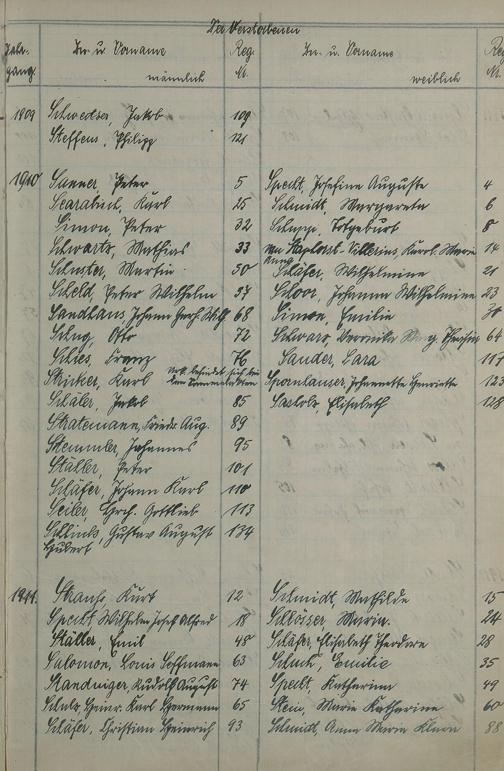 Der Verstorbenen
Jahrgang. Zu- u. Vorname männlich Reg. Nr. Zu- u. Vorname weiblich Reg. Nr.
1909 Schweckser, Jakob 109
Steffens, Philipp 121
1910 Sanner, Peter 5 Specht, Josefine Auguste 4
Karl 25 Schmidt, Margareta 6
Simon, Peter 32 Totgeburt 8
Schwartz, Mathias 33 14
Schuster, Martin 50 Schäfer, Wilhelmine 21
Scheld, Peter Wilhelm 57 Schoor, Johanna Wilhelmine 23
Sandhaus, Johann Gerh. Wilh. 68 Simon, Emilie 30
Schug, Otto 72 Schwarz, Veronika 64
Schies, Franz 76 Sander, Lara 117
Stricker, Karl Spornhauer, Johannette Henriette 123
Schäfer, Jakob 85 Elisabeth 128
Stratemann, Friedr. Aug. 89
Stemmler, Johannes 95
Ställer, Peter 101
Schäfer, Johann Karl 110
Seiler Grch. Gottlieb 113
Schlink, Gustav August 134
Hubert
1911. Strauß, Kurt 12 Schmidt, Mathilde 15
Specht Wilhelm Josef Alfred 18 Schlösser, Maria. 24
Ställer, Emil 48 Schäfer, Elisabeth Theodore 28
Salomon, Louis 63 Schuck, Emilie 35
Rudolf August 74 Specht, Katharina 49
Schulz, Heinr. Karl Hermann 65 Stein, Marie Katharine 60
Schäfer, Christian Heinrich 93 Schmidt, Anna Maria 88